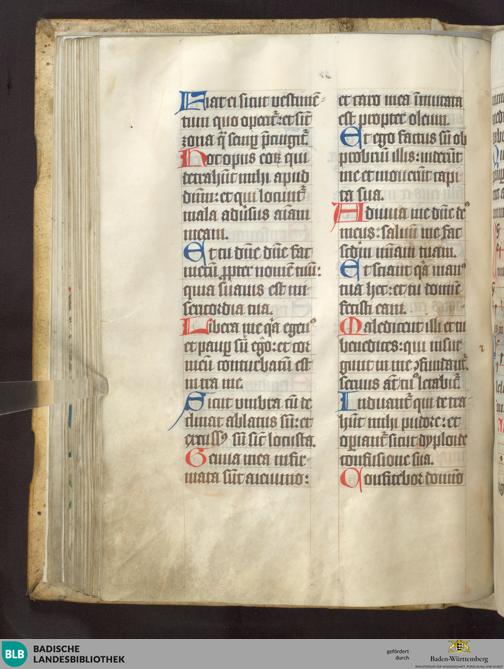 Fiat ei sicut vestimē-
tum quo operit̄: et sic̄
zona q̄ semp p̄cingit̄.
Hoc opus eoꝝ qui
detrahūt michi apud
dūm: et qui locunt̄
mala adūsus aīam
meam.
Et tu dn̄e dn̄e fac
mecū ꝓpter nomen tuū:
quia suauis est mi-
sericordia tua.
Libera me q̄a egenꝰ
et paup sū ego: et cor
meū conturbatū est
intra me.
Sicut umbra cū de-
clinat ablatus sū: et
excussꝰ sū sic̄ locusta.
Genua mea infir-
mata sūt a ieiunio:
et caro mea īmutata
est propter oleum.
Et ego factus sū ob
probriū illis: uiderūt
me et mouerūt capi
ta sua.
Adiuua me dn̄e deꝰ
meus: saluū me fac
scdm̄ mīam tuam.
Et sciant q̄a manꝰ
tua hec: et tu domie
fecisti eam.
Maledicent illi et tu
benedices: qui insur-
gunt in me ꝯfundant̄.
seruus aūt tuꝰ letabit̄.
Induant̄ qui detra-
hūt michi pudore: et
operiant̄ sicut dyploide
confusione sua.
Confitebor domino
BLB
BADISCHE
LANDESBIBLIOTHEK
gefördert
durch
Baden-Württemberg